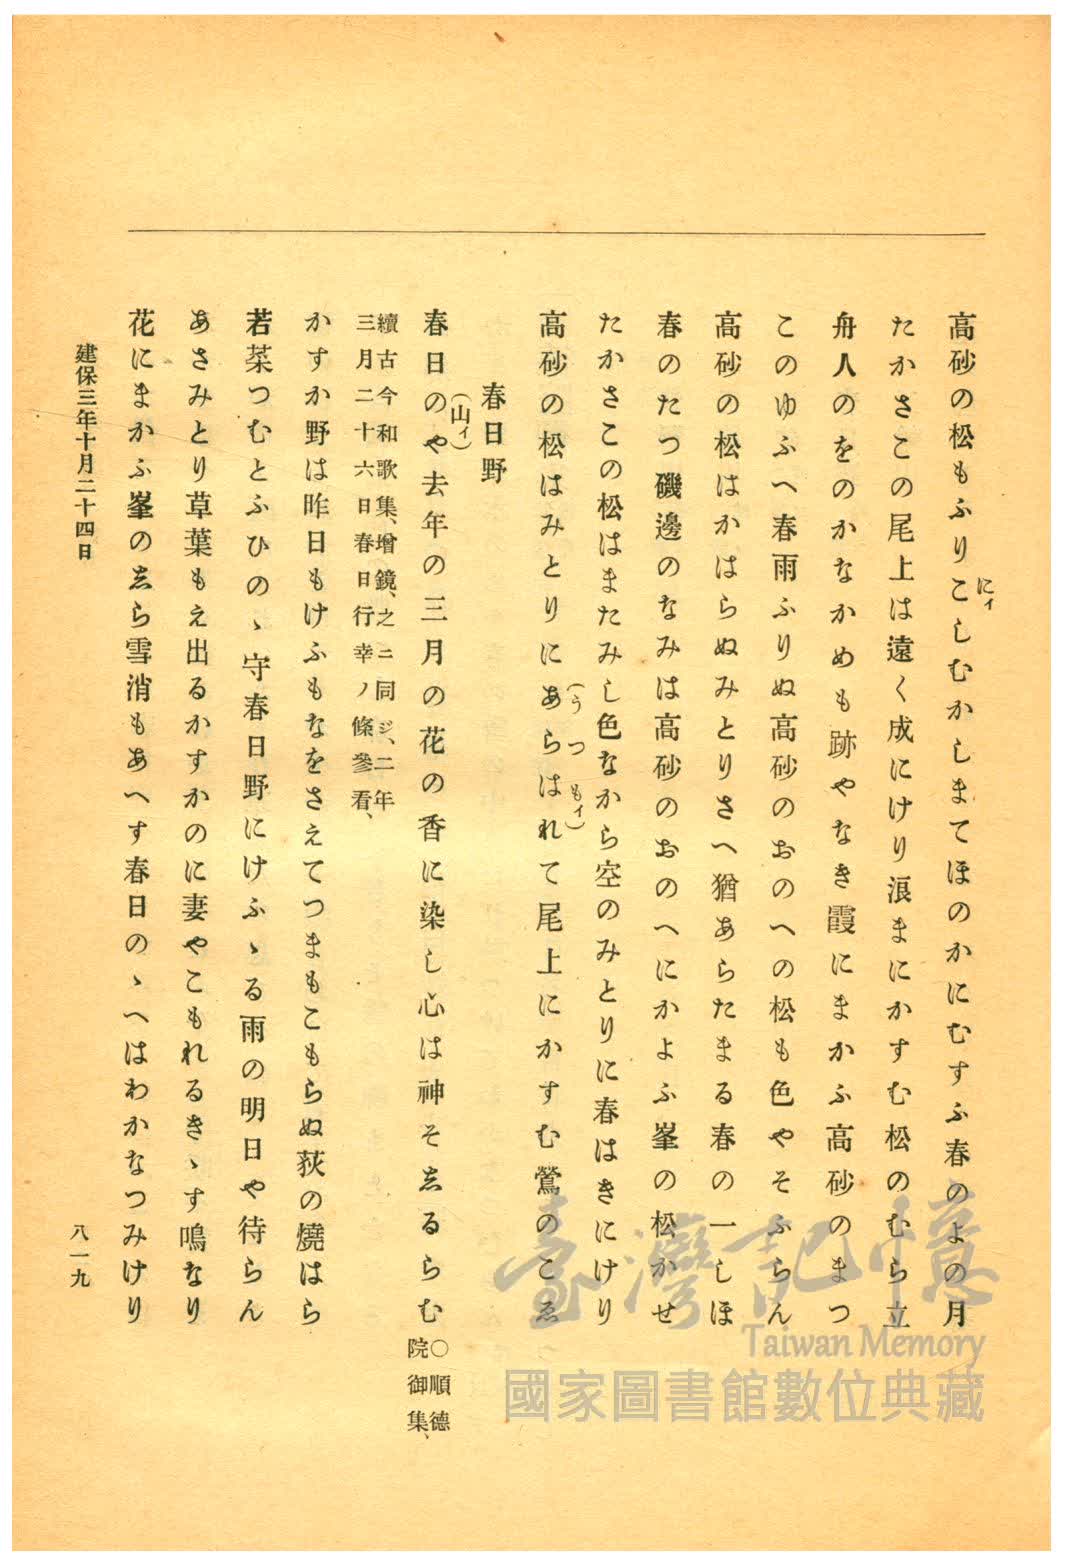 高砂の松もふりこしむかしまてほのかにむすふ春のよの月
にィ
たかさこの尾上は遠く成にけり浪まにかすむ松のむら立
舟人のをのかなかめも跡やなき霞にまかふ高砂のまつ
このゆふへ春雨ふりぬ高砂のおのへの松も色やそふらん
高砂の松はかはらぬみとりさへ猶あらたまる春の一しほ
春のたつ磯邊のなみは高砂のおのへにかよふ峯の松かせ
たかさこの松はまたみし色なから空のみとりに春はきにけり
高砂の松はみとりにあらはれて尾上にかすむ鶯のこゑ
(うつもィ)
春日野
春日のや去年の三月の花の香に染し心は神そゑるらむ
(山ィ)
○順德
院御集、
續古今和歌集、增鏡、之ニ同ジ、二年
三月二十六日春日行幸ノ條參看、
かすか野は昨日もけふもなをさえてつまもこもらぬ荻の燒はら
若菜つむとふひのゝ守春日野にけふゝる雨の明日や待らん
あさみとり草葉もえ出るかすかのに妻やこもれるきゝす鳴なり
花にまかふ峯のゑら雪消もあへす春日のゝへはわかなつみけり
建保三年十月二十四日
八一九
臺灣記憶
Taiwan Memory
國家圖書館數位典藏